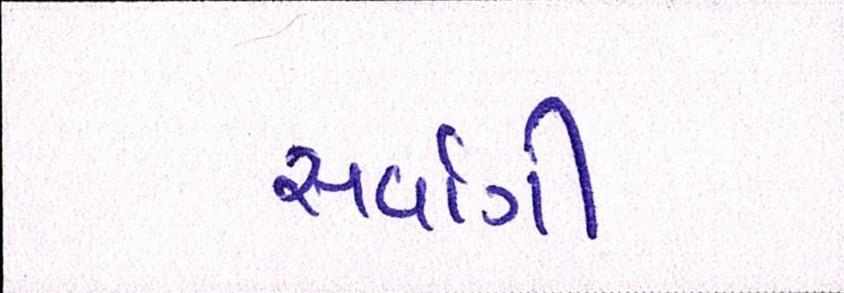 સર્વાગી